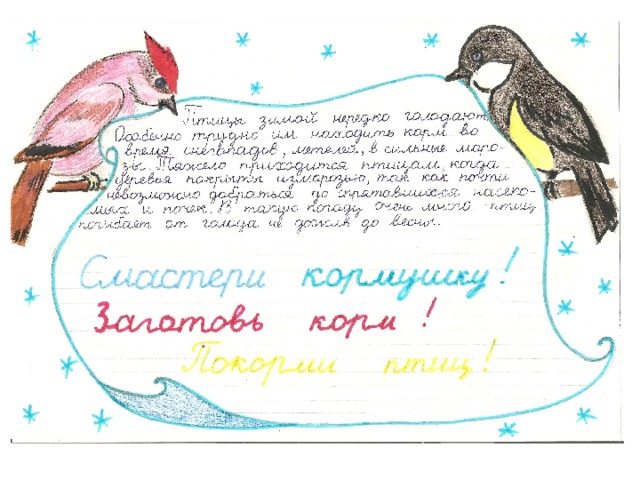 Птицы зимой нередко голодают.
Особенно трудно им находить корм во
время снегопадов, метелей, в сильные моро-
зы. Тяжело приходится птицам, когда
деревья покрыты изморозью, так как почти
невозможно добраться до спрятавшихся насеко-
мых и почек. В такую погоду очень много птиц
погибает от голода не дожив до весны..
Смастери кормушку!
Заготовь корм!
Покорми птиц!